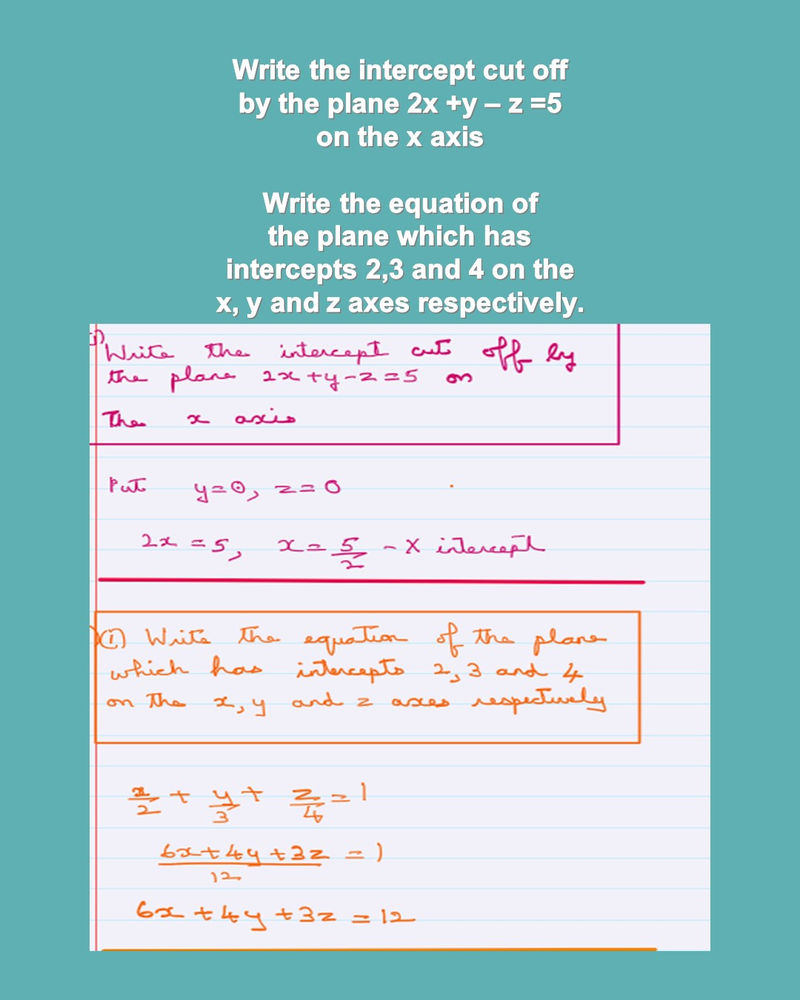 Write the intercept cut off
by the plane 2x +y – z =5
on the x axis
Write the equation of
the plane which has
intercepts 2,3 and 4 on the
x, y and z axes respectively.
Write the intercept cut off by
the plane 2x+y-z=5 on
The x axis
Put y=0, z=0
2x =5, x= 5/2 - X intercept
(i) Write the equation of the plane
which has intercepts 2,3 and 4
on the x, y and z axes respectively
x/2 + y/3 + z/4 =1
6x+4y+3z/12 =1
6x+4y+3z =12